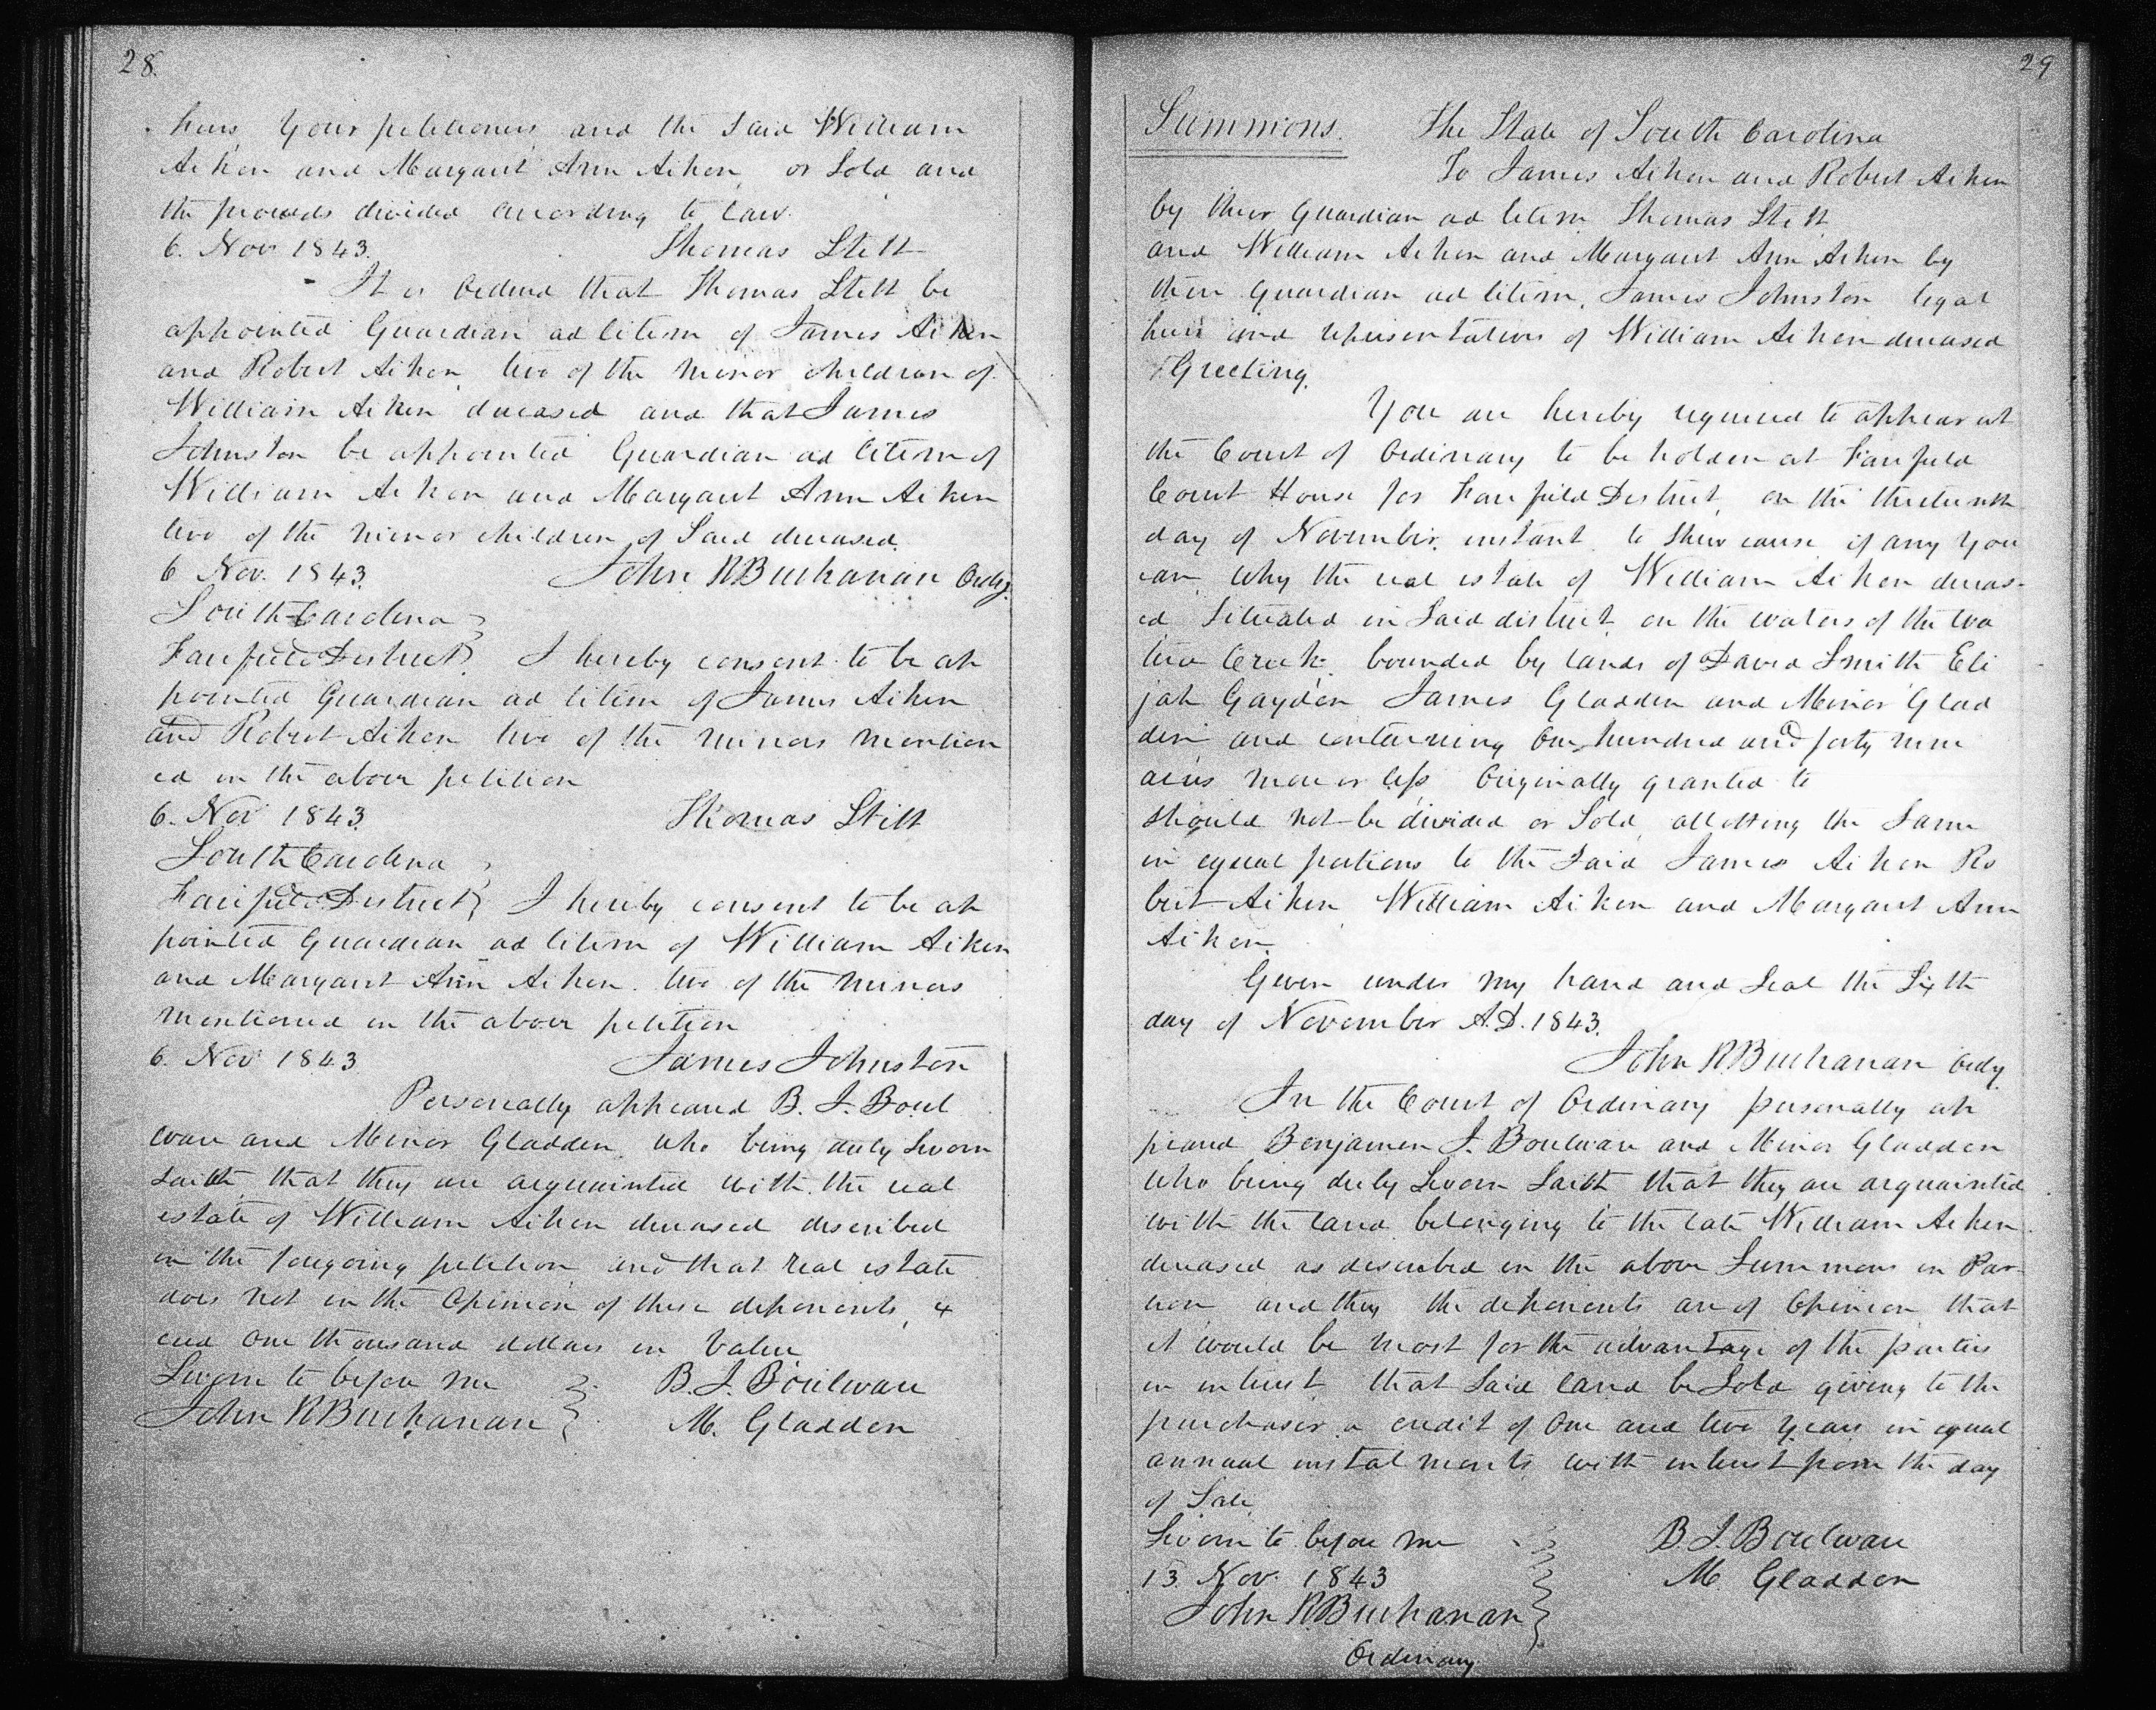 28.
heirs, Your petitioners, and the said William
Aiken and Margaret Ann Aiken, or Sold and
the proceeds divided according to law.
6. Nov 1843. Thomas Stett
It is Ordered that Thomas Stett be
appointed Guardian ad litem of James Aiken
and Robert Aiken, two of the minor children of
William Aiken deceased and that James
Johnston be appointed Guardian ad litem of
William Aiken and Margaret Ann Aiken
two of the minor children of Said deceased.
6 Nov. 1843. John R Buchanan Ordy.
South Carolina
Fairfield District I hereby consent to be ap
pointed Guardian ad litem of James Aiken
and Robert Aiken two of the minors mention
ed in the above petition
6. Nov 1843. Thomas Stett
South Carolina
Fairfield District I hereby consent to be ap
pointed Guardian ad litem of William Aiken
and Margaret Ann Aiken. two of the minors
mentioned in the above petition
6. Nov 1843 James Johnston
Personally appeared B. J. Boul
ware and Minor Gladden, who being duly Sworn
saith that they are acquainted with the real
estate of William Aiken deceased described
in the foregoing petition and that real estate
does not in the Opinion of these deponents, ex
ceed One thousand dollars in Value
Sworn to before me B. J. Boulware
John R Buchanan M. Gladden
29
Summons. The State of South Carolina
To James Aiken and Robert Aiken
by their Guardian ad litem Thomas Stett
and William Aiken and Margaret Ann Aiken by
their Guardian ad litem, James Johnston legal
heirs and representatives of William Aiken deceased
Greeting.
You are hereby required to appear at
the Court of Ordinary to be holden at Fairfield
Court House for Fairfield District, on the thirteenth
day of November instant to Shew cause if any You
can, Why the real estate of William Aiken deceas-
ed Situated in Said district on the waters of the Wa
teree Creek bounded by lands of David Smith Eli
jah Gayden James Gladden and Minor Glad
den and containing One hundred and forty nine
acres more or less Originally granted to
Should not be divided or Sold, allotting the Same
in equal portions to the Said James Aiken Ro
bert Aiken William Aiken and Margaret Ann
Aiken.
Given under my hand and Seal the Sixth
day of November A.D. 1843.
John R Buchanan Ordy.
In the Court of Ordinary personally ap
peared Benjamin J. Boulware and Minor Gladden
who being duly Sworn Saith that they are acquainted
with the land belonging to the late William Aiken
deceased as described in the above Summons in Par-
tion and they the deponents are of Opinion that
it would be most for the advantage of the parties
in interest that Said land be Sold giving to the
purchaser a credit of One and two years in equal
annual instalments with interest from the day
of Sale
Sworn to before me B. J. Boulware
13. Nov. 1843 M Gladden
John R. Buchanan
Ordinary